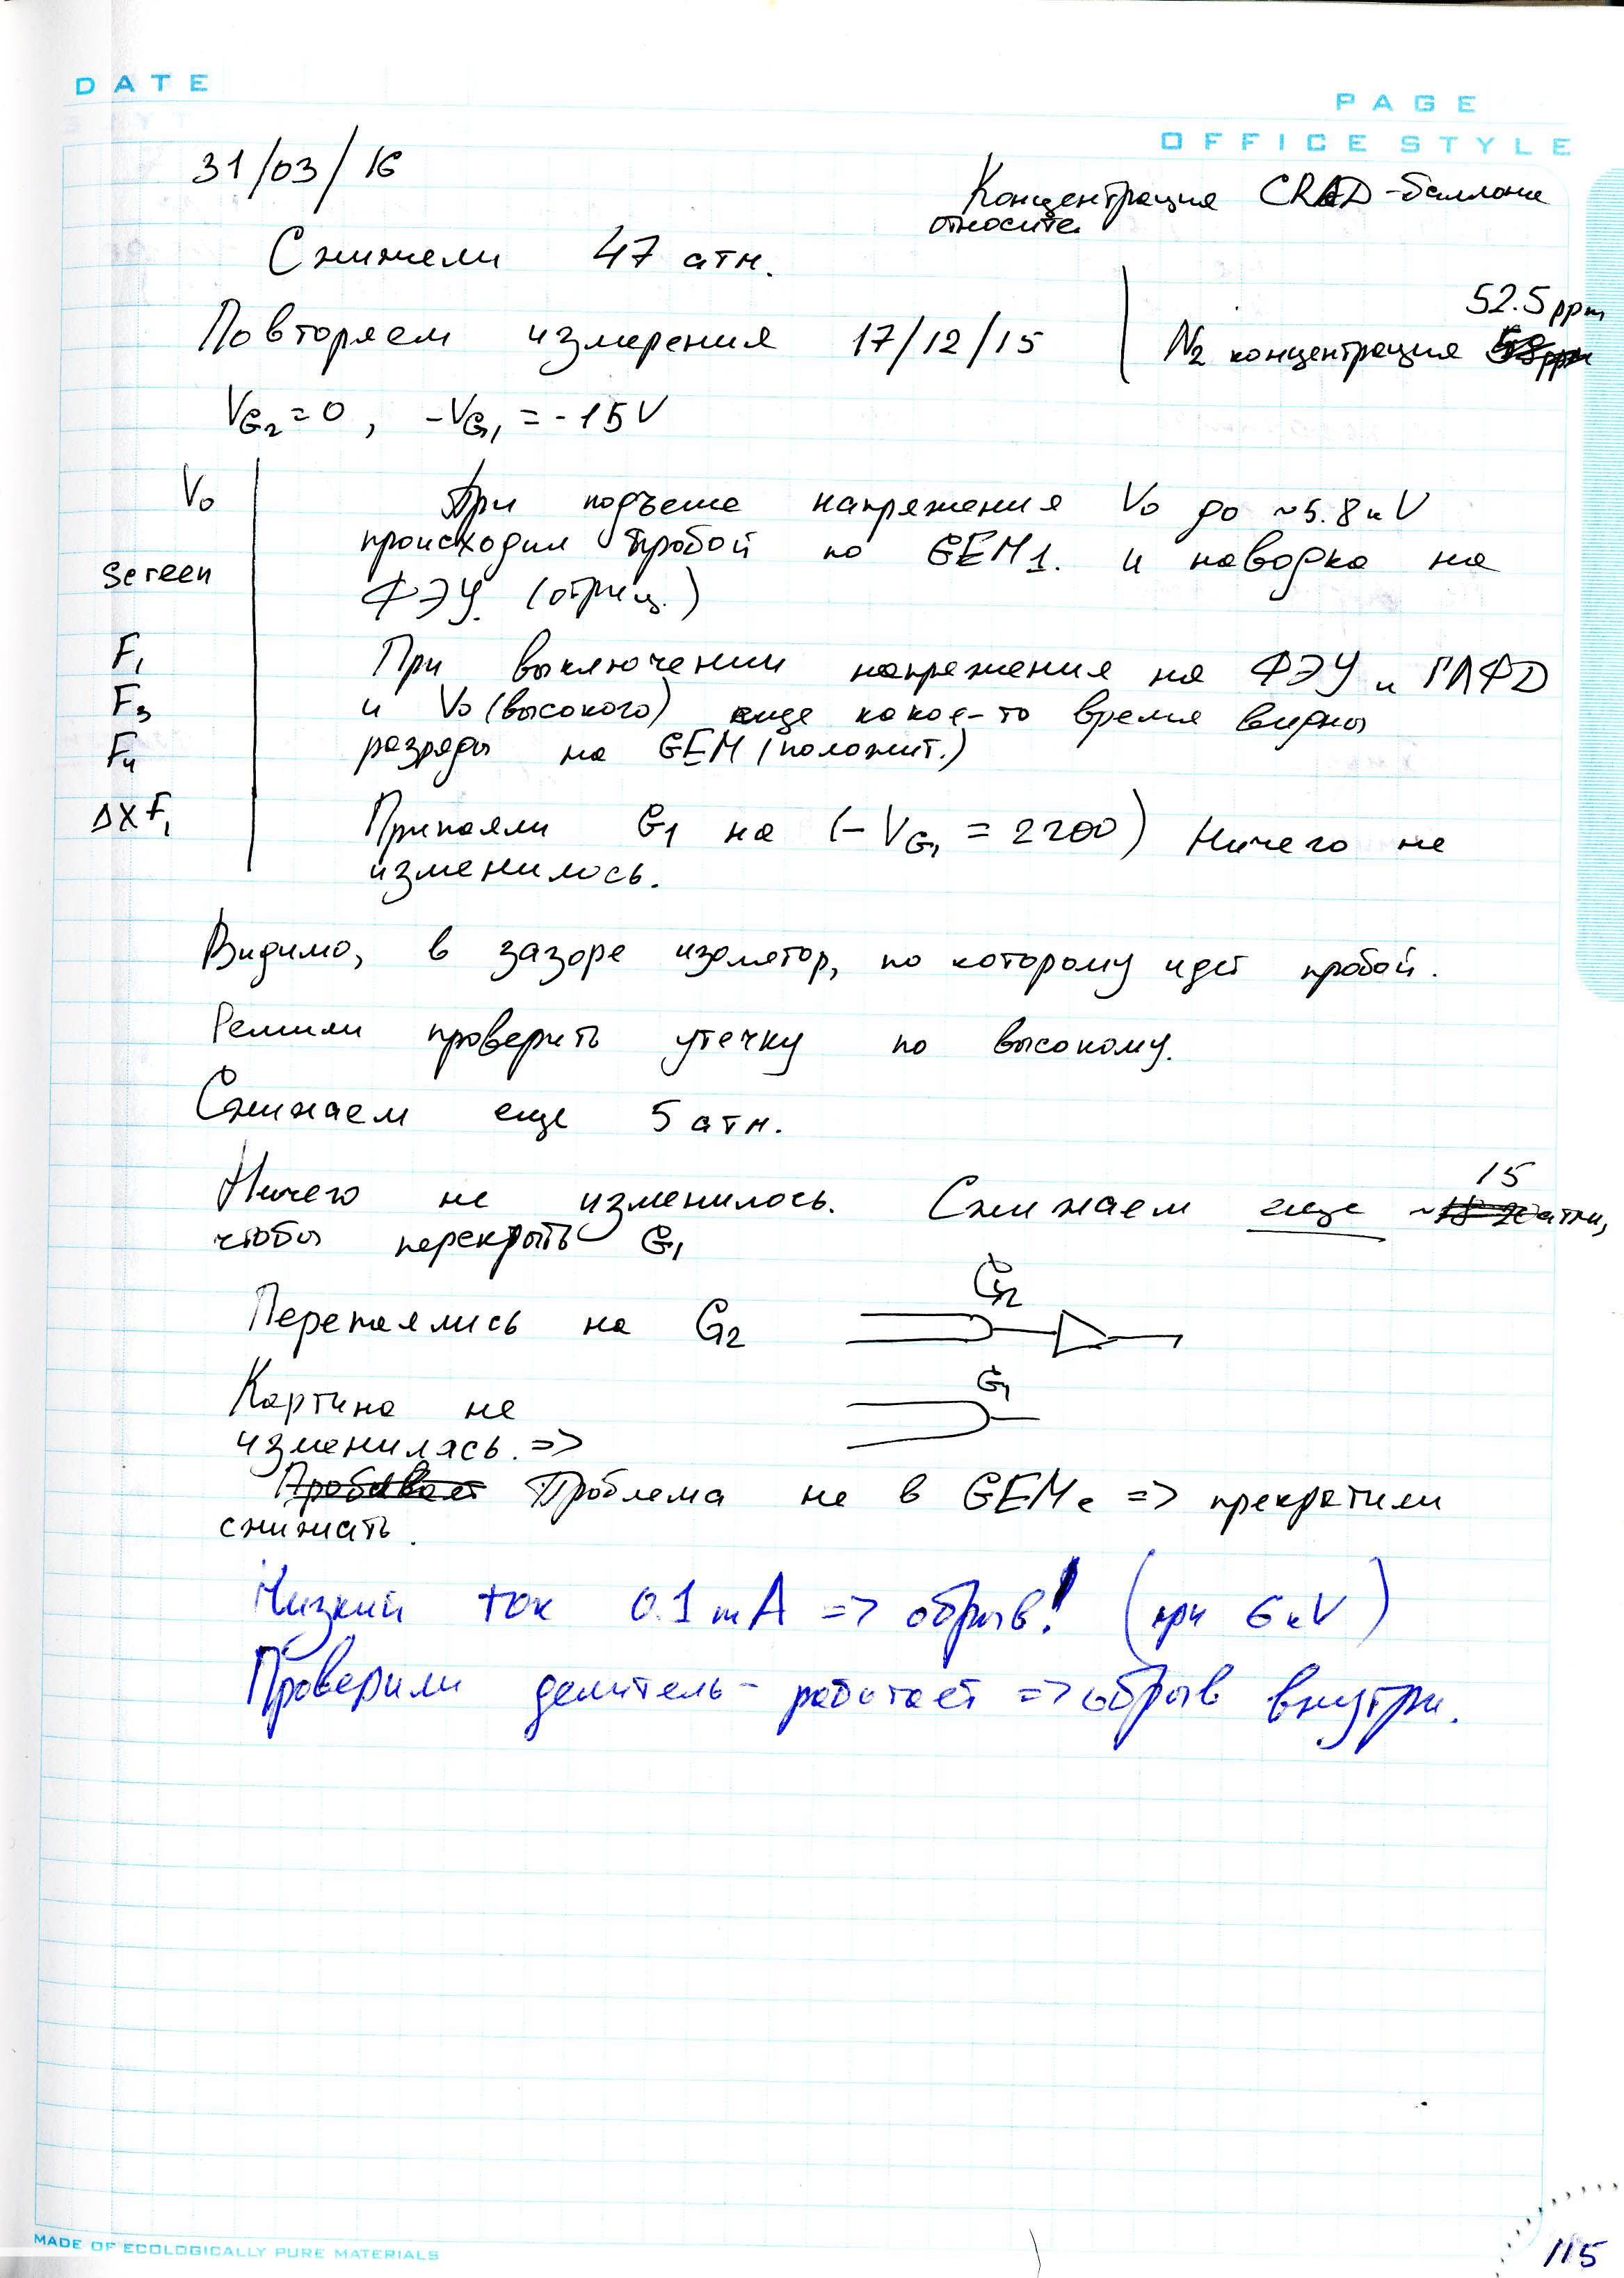 DATE
PAGE
OFFICE STYLE
31/03/16
Концентрация CRAD-баллоне
относите.
Снижели 47 атм.
52.5 ppm
Повторяем измерения 17/12/15
N₂ концентрация
V_G2 = 0, -V_G1 = -15V
V₀
При подъеме напряжения V₀ до ~5.8 кV
происходил пробой по GEM1. и наводка на
Screen
ФЭУ. (отриц.)
F₁
При выключении напряжения на ФЭУ и ГЛФД
F₃
и V₀ (высокого) еще какое-то время видны
F₄
разряды на GEM (положит.)
ΔX F₁
Припаяли G1 на (-V_G1 = 2200) Ничего не
изменилось.
Видимо, в зазоре изолятор, по которому идет пробой.
Решили проверить утечку по высокому.
Снижаем еще 5 атм.
15
Ничего не изменилось. Снижаем еще ~ атм,
чтобы перекрыть G₁
G₂
Перепаялись на G₂
G₁
Картина не
изменилась. =>
Проблема не в GEMе => прекратили
снижать.
Низкий ток 0.1 mA => обрыв! (при 6 кV)
Проверили делитель - работает => обрыв внутри.
MADE OF ECOLOGICALLY PURE MATERIALS
115